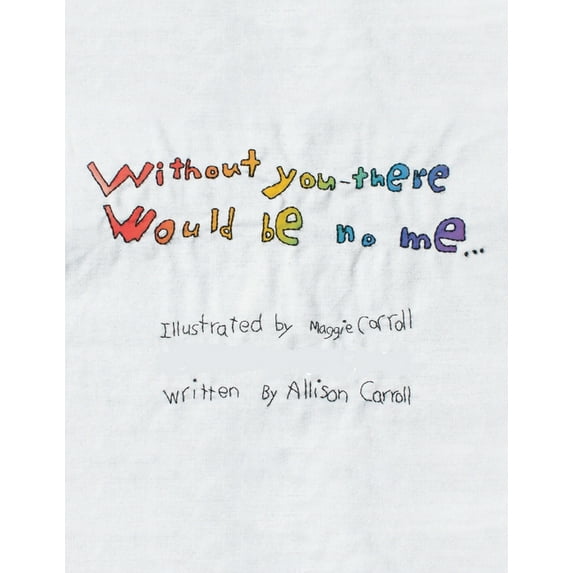 Without you-there
Would be no me...
Illustrated by Maggie Carroll
Written By Allison Carroll